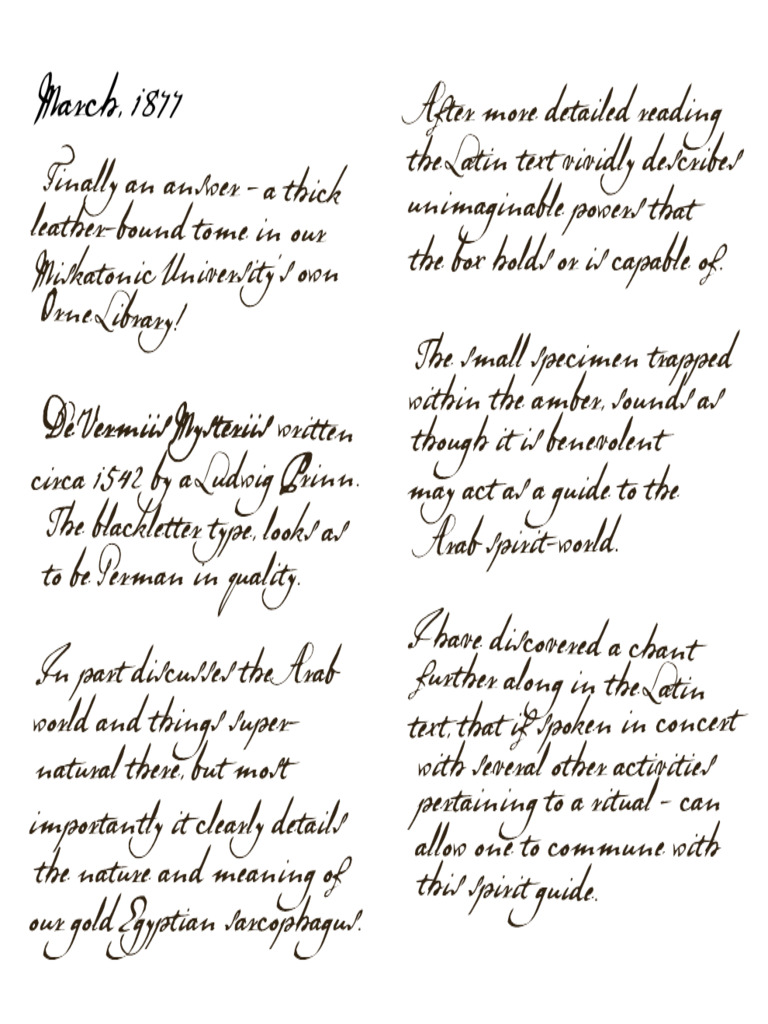 March, 1877
Finally an answer – a thick
leather-bound tome in our
Miskatonic University's own
Orne Library!
De Vermiis Mysteriis written
circa 1542 by a Ludwig Prinn.
The blackletter type, looks as
to be Perman in quality.
In part discusses the Arab
world and things super-
natural there, but most
importantly it clearly details
the nature and meaning of
our gold Egyptian sarcophagus.
After more detailed reading
the Latin text vividly describes
unimaginable powers that
the box holds or is capable of.
The small specimen trapped
within the amber, sounds as
though it is benevolent
may act as a guide to the
Arab spirit-world.
I have discovered a chant
further along in the Latin
text, that if spoken in concert
with several other activities
pertaining to a ritual – can
allow one to commune with
this spirit guide.